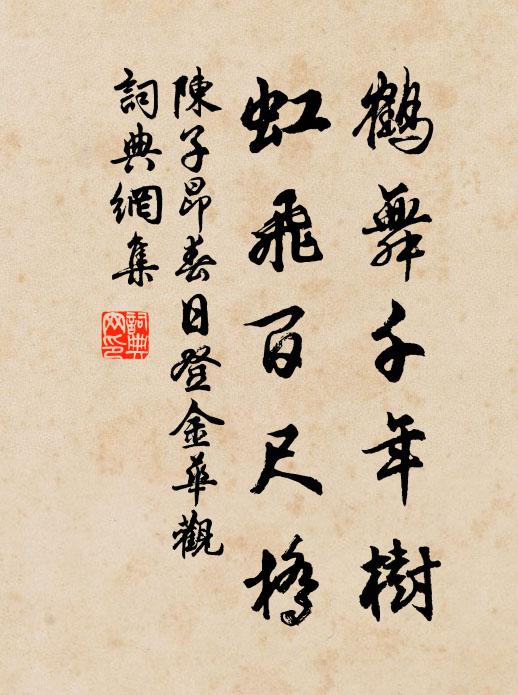 鶴舞千年樹
虹飛百尺橋
陳子昂春日登金華觀
詞典網集
詞典網印